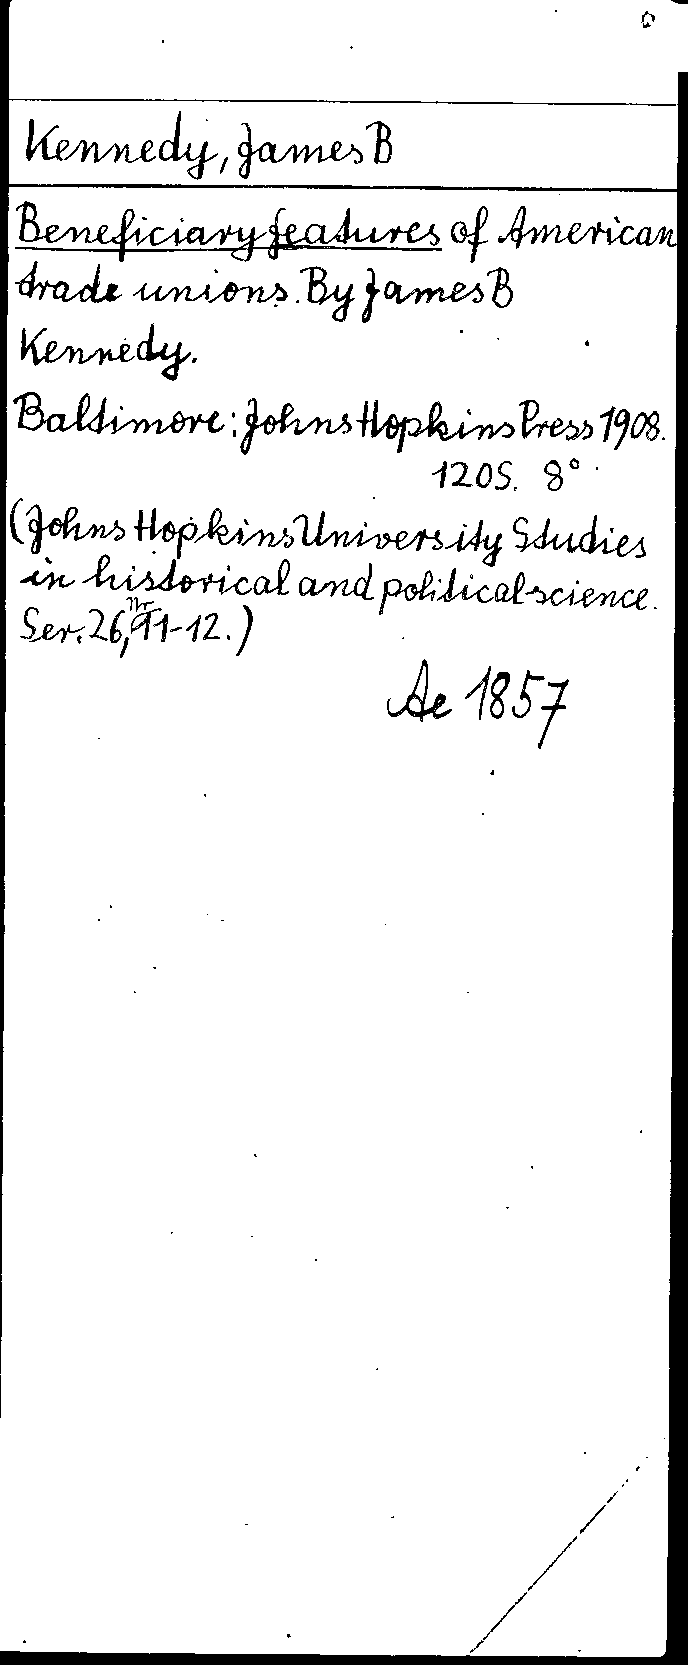 Kennedy, James B
Beneficiary features of American
trade unions. By James B
Kennedy.
Baltimore: Johns Hopkins Press 1908.
120S. 8°
(Johns Hopkins University Studies
in historical and political science.
Ser. 26, Nr 11-12.)
Ae 1857